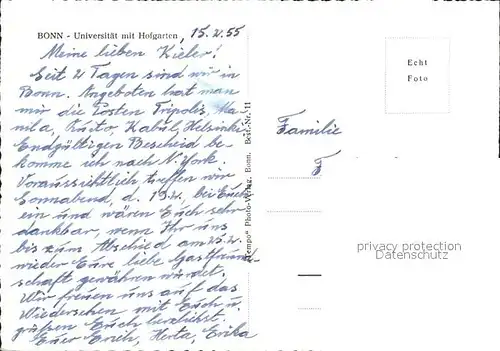 BONN - Universität mit Hofgarten, 15.2.55
Meine lieben Kieler!
Seit 2 Tagen sind wir in
Bonn. Angeboten hat man
mir die Posten Tripolis, Ma-
nila, Quito, Kabul, Helsinki
Endgültigen Bescheid be-
komme ich nach N. York.
Voraussichtlich treffen wir
Sonnabend, d. 19.2. bei Euch
ein und wären Euch sehr
dankbar, wenn Ihr uns
bis zum Abschied am 25.2.
wieder Eure liebe Gastfreund-
schaft gewähren würdet.
Wir freuen uns auf das
Wiedersehen mit Euch u.
grüßen Euch herzlichst.
Euer Erich, Herta, Erika
"Tempo" Photo-Verlag, Bonn. Best.-Nr. 11
Echt
Foto
Familie
T
privacy protection
Datenschutz